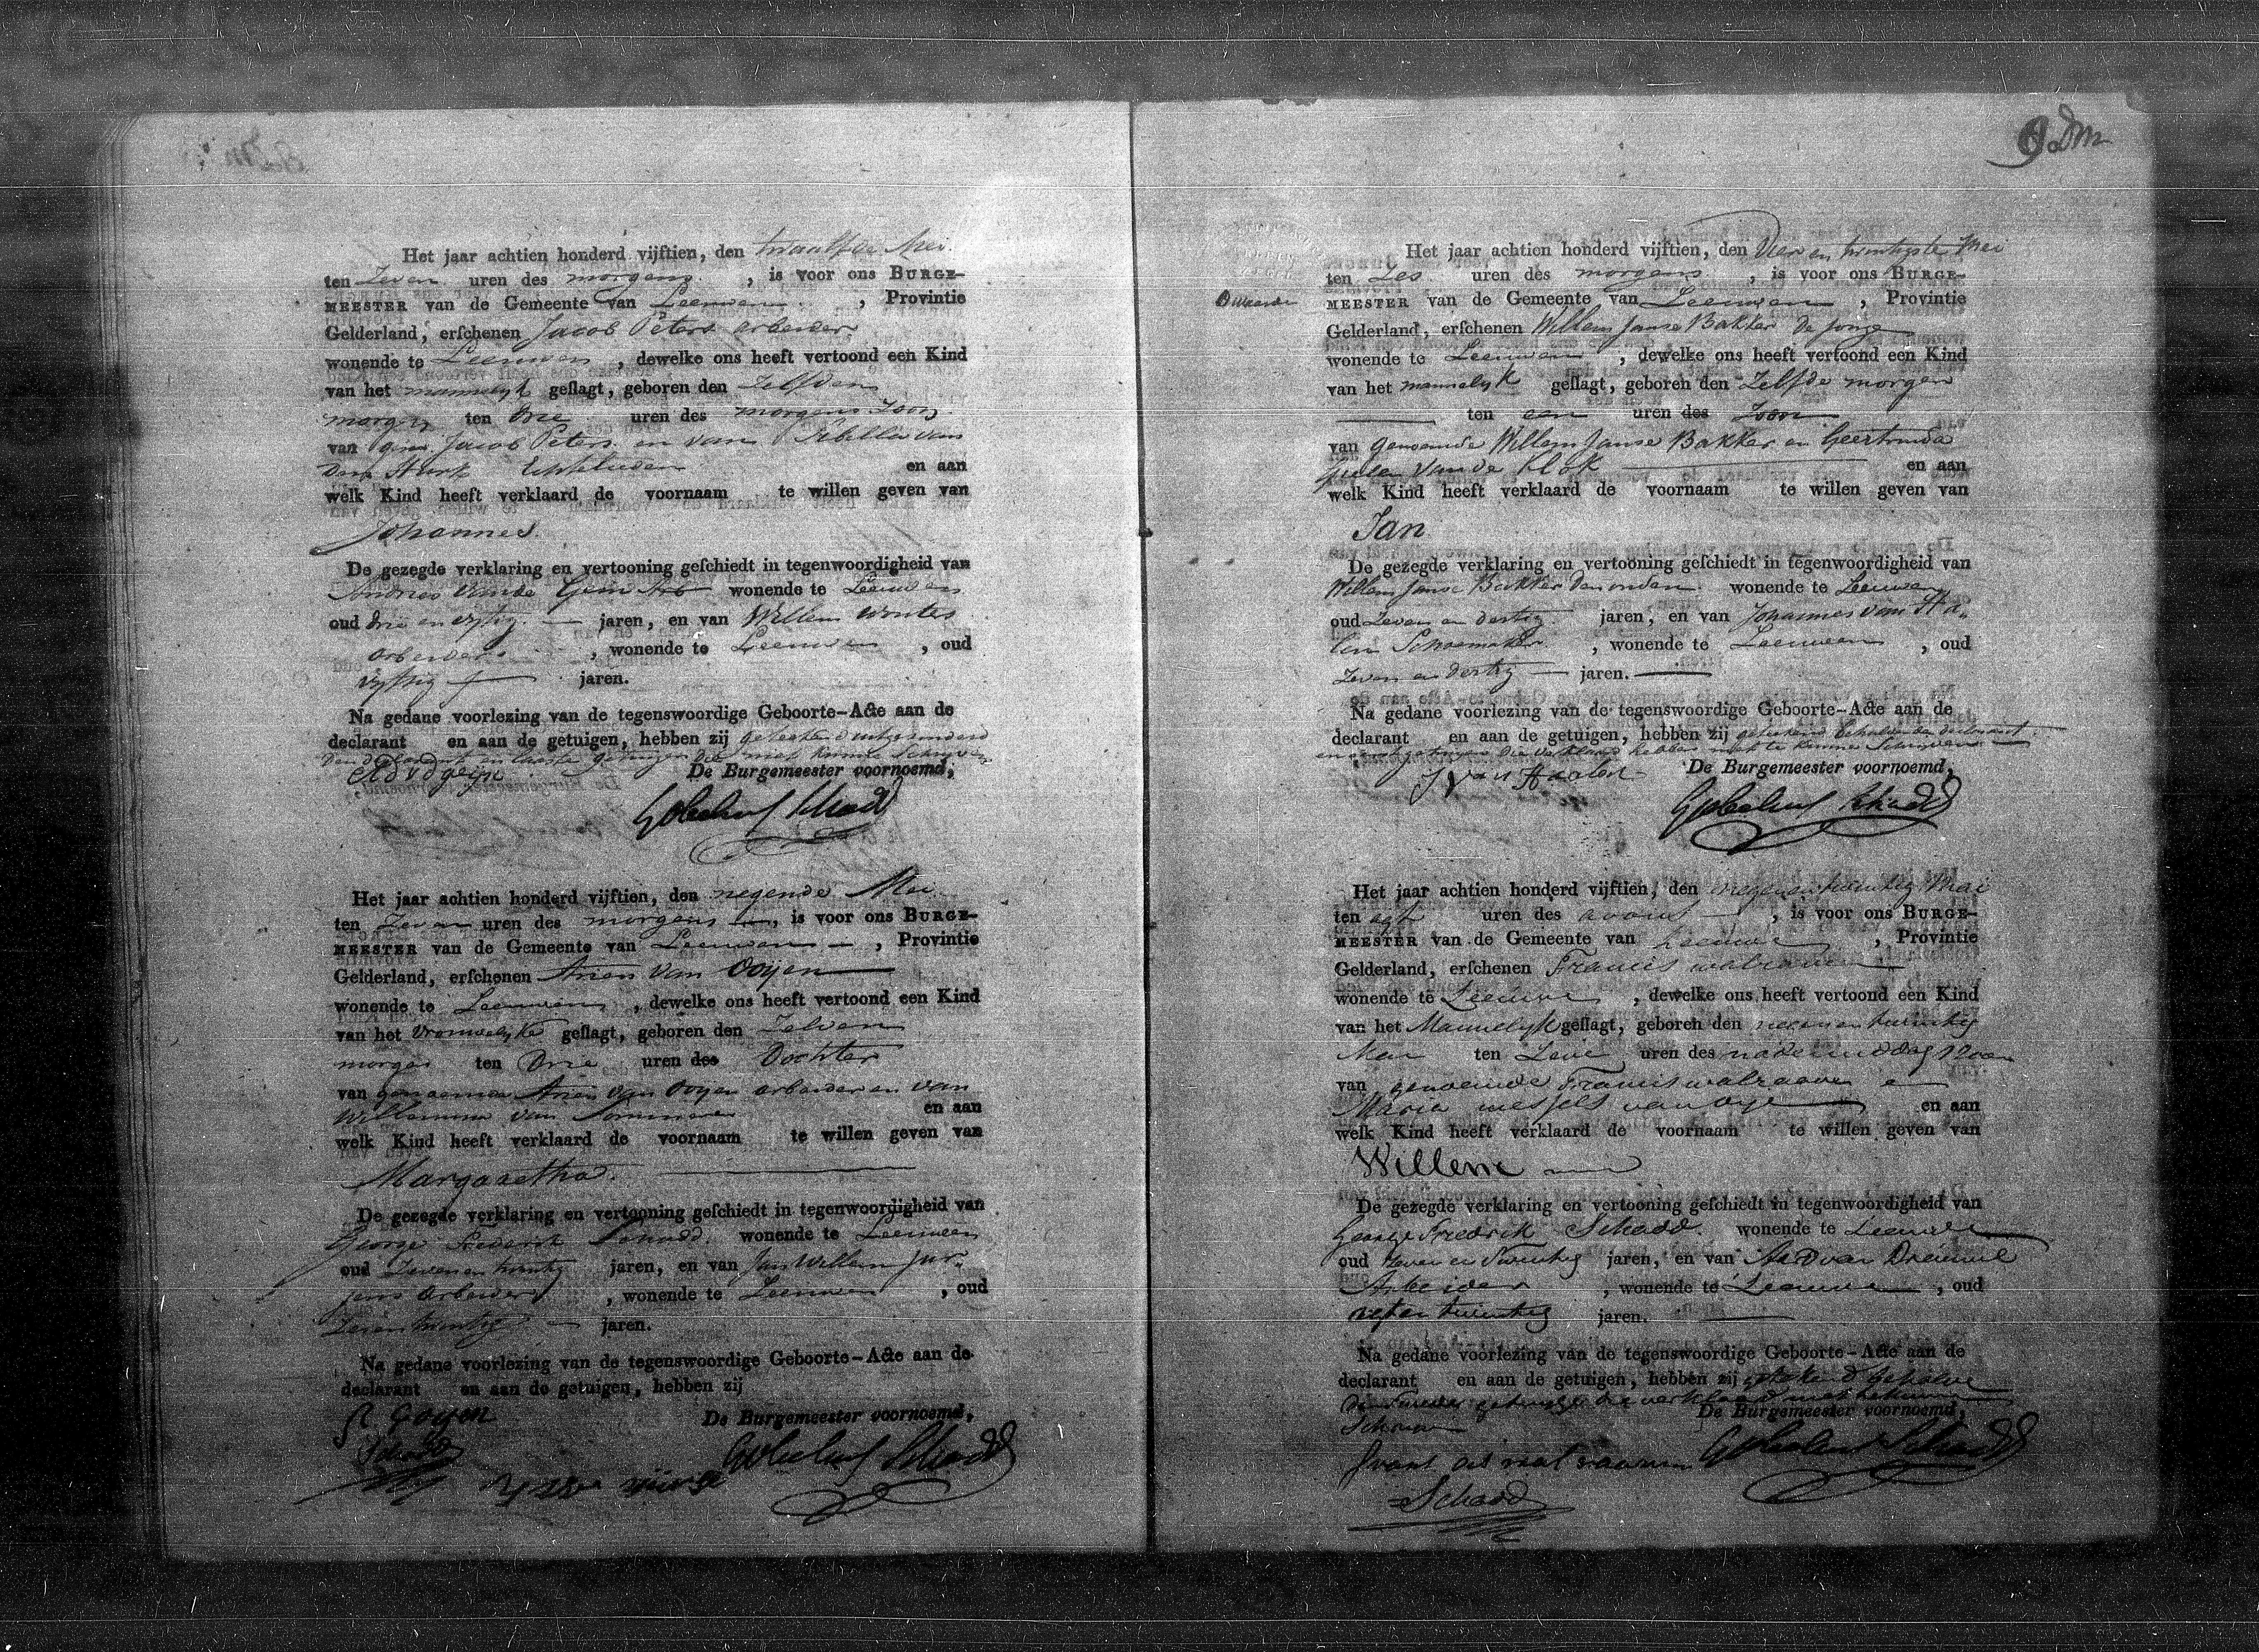 9 Dm
Het jaar achtien honderd vijftien, den twaalfde Mei
ten Zeven uren des morgens, is voor ons BURGE-
MEESTER van de Gemeente van Leeuwen, Provintie
Gelderland, erſchenen Jacob Peters arbeider
wonende te Leeuwen, dewelke ons heeft vertoond een Kind
van het mannelyk geſlagt, geboren den Zelfden
morgen ten Drie uren des morgens Zoon
van Jacob Peters en van Sibilla van
Echtelieden en aan
welk Kind heeft verklaard de voornaam te willen geven van
Johannes.
De gezegde verklaring en vertooning geſchiedt in tegenwoordigheid van
Andries van de Gein Arb wonende te Leeuwen
oud drie en vyftig jaren, en van Willem
arbeider, wonende te Leeuwen, oud
vyftig jaren.
Na gedane voorlezing van de tegenswoordige Geboorte-Acte aan de
declarant en aan de getuigen, hebben zij getekend
den declarant en laaste getuigen die niet konne Schryven
AdvdGeijn De Burgemeester voornoemd,
Schadd
Het jaar achtien honderd vijftien, den negende Mei
ten Zeven uren des morgens, is voor ons BURGE-
MEESTER van de Gemeente van Leeuwen, Provintie
Gelderland, erſchenen Arien van Ooijen
wonende te Leeuwen, dewelke ons heeft vertoond een Kind
van het Vrouwelyke geſlagt, geboren den Zelven
morgen ten Drie uren des Dochter
van genoemde Arien van Ooyen arbeider en van
Willemina van en aan
welk Kind heeft verklaard de voornaam te willen geven van
Margaretha.
De gezegde verklaring en vertooning geſchiedt in tegenwoordigheid van
George Frederik Schadd wonende te Leeuwen
oud Zeven en twintig jaren, en van Jan Willem Jur-
jens Arbeider, wonende te Leeuwen, oud
jaren.
Na gedane voorlezing van de tegenswoordige Geboorte-Acte aan de
declarant en aan de getuigen, hebben zij
Goyen De Burgemeester voornoemd,
Schadd
Schadd
Het jaar achtien honderd vijftien, den Vier en twintigste Mei
ten Zes uren des morgens, is voor ons BURGE-
MEESTER van de Gemeente van Leeuwen, Provintie
Gelderland, erſchenen Willem Janse Bakker De Jonge
wonende te Leeuwen, dewelke ons heeft vertoond een Kind
van het mannelyk geſlagt, geboren den Zelfde morgen
ten een uren des Zoon
van Genoemde Willem Janse Bakker en Geertruida
van de Klok en aan
welk Kind heeft verklaard de voornaam te willen geven van
Jan
De gezegde verklaring en vertooning geſchiedt in tegenwoordigheid van
Willem Janse Bakker Den ouden wonende te Leeuwen
oud Zeven en dertig jaren, en van Johannes van Ha-
len Schoemaker, wonende te Leeuwen, oud
Zeven en dertig jaren.
Na gedane voorlezing van de tegenswoordige Geboorte-Acte aan de
declarant en aan de getuigen, hebben zij getekend behalve den declarant
en getuigen die verklaard hebben niet te kunnen Schryven
J van Haalen De Burgemeester voornoemd,
Schadd
Het jaar achtien honderd vijftien, den negenentwintig Mai
ten agt uren des avons, is voor ons BURGE-
MEESTER van de Gemeente van Leeuwe, Provintie
Gelderland, erſchenen Francis walraven
wonende te Leeuwe, dewelke ons heeft vertoond een Kind
van het Mannelyk geſlagt, geboren den negenentwintig
Mai ten Zeve uren des nademiddag Zoon
van genoemde Francis walraaven e
Maria wessels van oye en aan
welk Kind heeft verklaard de voornaam te willen geven van
Willem
De gezegde verklaring en vertooning geſchiedt in tegenwoordigheid van
George Fredrik Schadd wonende te Leeuwe
oud Zeven en Twintig jaren, en van Ard van Dreumel
Arbeider, wonende te Leeuwe, oud
jaren.
Na gedane voorlezing van de tegenswoordige Geboorte-Acte aan de
declarant en aan de getuigen, hebben zij getekend behalve
den tweede getuige die verklaard niet te kunne
Schryve De Burgemeester voornoemd,
Schadd
Schadd